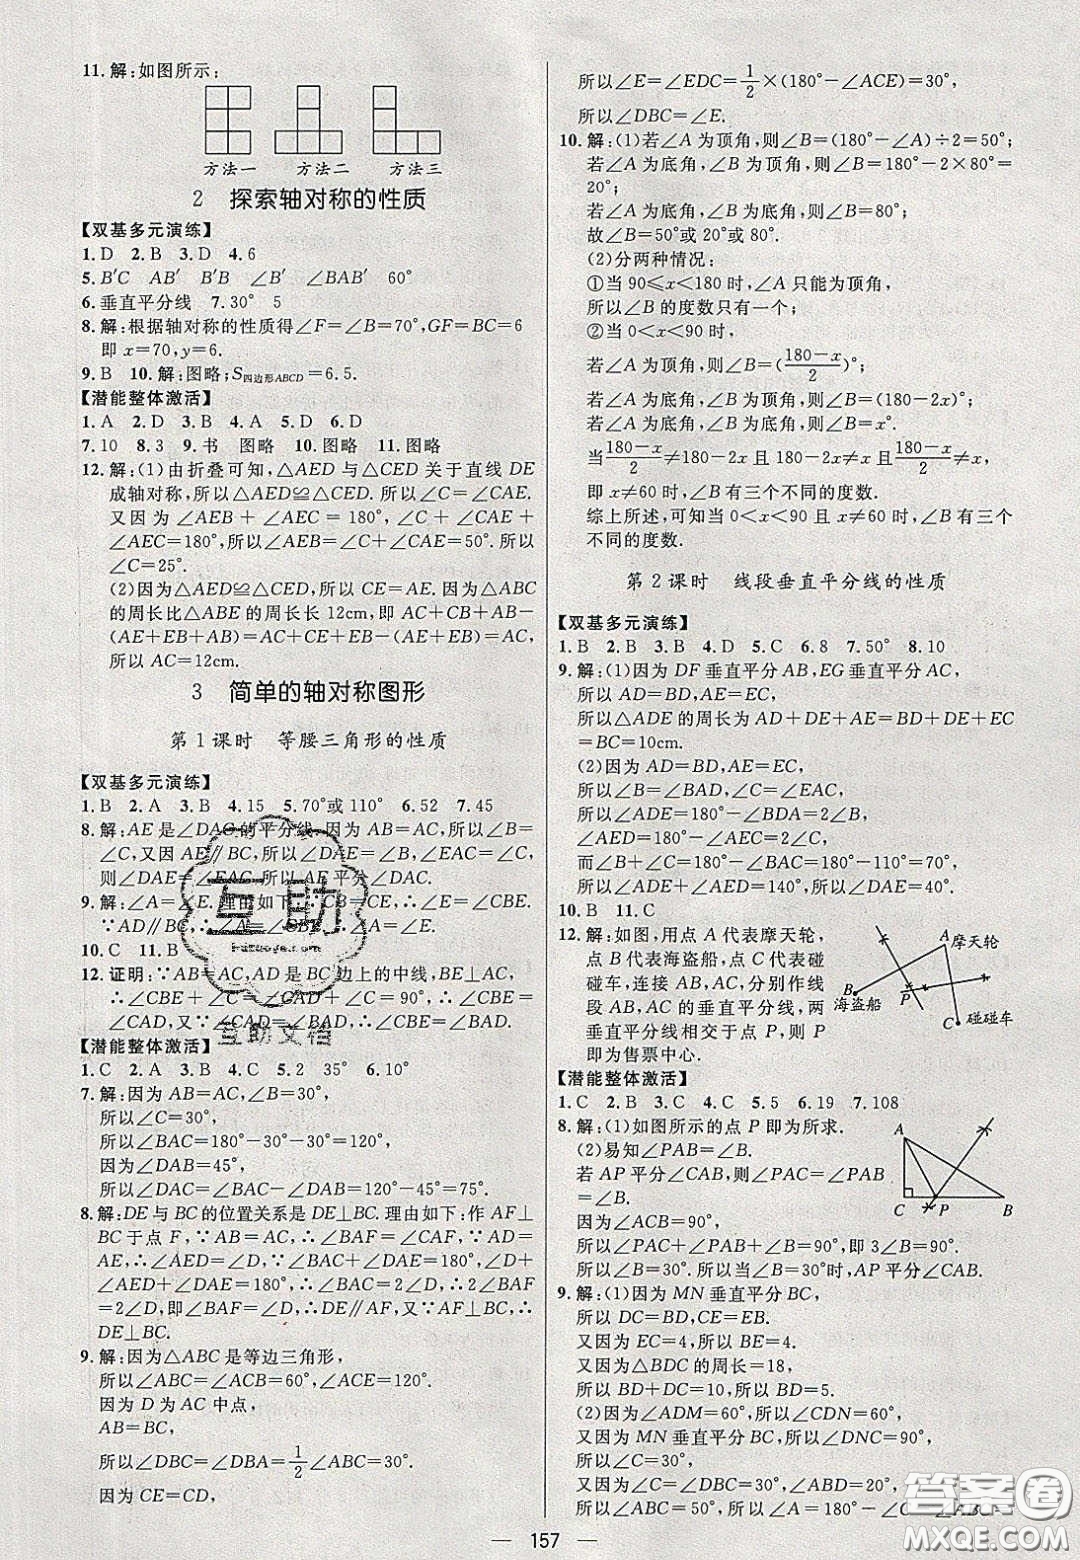 11. 解:如图所示:
方法一 方法二 方法三
2 探索轴对称的性质
【双基多元演练】
1. D 2. B 3. D 4. 6
5. B′C AB′ B′B ∠B′ ∠BAB′ 60°
6. 垂直平分线 7. 30° 5
8. 解:根据轴对称的性质得∠F=∠B=70°,GF=BC=6
即 x=70,y=6.
9. B 10. 解:图略;S四边形ABCD=6.5.
【潜能整体激活】
1. A 2. D 3. B 4. A 5. D 6. D
7. 10 8. 3 9. 书 图略 10. 图略 11. 图略
12. 解:(1)由折叠可知,△AED 与△CED 关于直线 DE
成轴对称,所以△AED≌△CED. 所以∠C=∠CAE.
又因为 ∠AEB + ∠AEC = 180°, ∠C + ∠CAE +
∠AEC=180°,所以∠C+∠CAE=∠AEB=50°. 所以
∠C=25°.
(2)因为△AED≌△CED,所以 CE=AE. 因为△ABC
的周长比△ABE 的周长长 12cm,即 AC+CB+AB-
(AE+EB+AB)=AC+CE+EB-(AE+EB)=AC,
所以 AC=12cm.
3 简单的轴对称图形
第 1 课时 等腰三角形的性质
【双基多元演练】
1. B 2. A 3. B 4. 15 5. 70°或 110° 6. 52 7. 45
8. 解:AE 是∠DAC 的平分线. 因为 AB=AC,所以∠B=
∠C,又因 AE∥BC,所以∠DAE=∠B,∠EAC=∠C,
则∠DAE=∠EAC,所以 AE 平分∠DAC.
9. 解:∠A=∠E. 理由如下:∵CB=CE,∴∠E=∠CBE.
∵AD∥BC,∴∠A=∠CBE,∴∠A=∠E.
10. C 11. B
12. 证明:∵AB=AC,AD 是 BC 边上的中线,BE⊥AC,
∴∠CBE+∠C=∠CAD+∠C=90°,∴∠CBE=
∠CAD,又∵∠CAD=∠BAD,∴∠CBE=∠BAD.
【潜能整体激活】
1. C 2. A 3. B 4. C 5. 2 35° 6. 10°
7. 解:因为 AB=AC,∠B=30°,
所以∠C=30°,
所以∠BAC=180°-30°-30°=120°,
因为∠DAB=45°,
所以∠DAC=∠BAC-∠DAB=120°-45°=75°.
8. 解:DE 与 BC 的位置关系是 DE⊥BC. 理由如下:作 AF⊥
BC 于点 F,∵AB=AC,∴∠BAF=∠CAF,∵AD=
AE,∴∠D=∠AED,∵∠BAC+∠DAE=180°,∠D+
∠AED+∠DAE=180°,∴∠BAC=2∠D,∴2∠BAF
=2∠D,即∠BAF=∠D,∴DE∥AF,又∵AF⊥BC,∴
DE⊥BC.
9. 解:因为△ABC 是等边三角形,
所以∠ABC=∠ACB=60°,∠ACE=120°.
因为 D 为 AC 中点,
AB=BC,
所以∠DBC=∠DBA=1/2∠ABC=30°.
因为 CE=CD,
所以∠E=∠EDC=1/2×(180°-∠ACE)=30°,
所以∠DBC=∠E.
10. 解:(1)若∠A 为顶角,则∠B=(180°-∠A)÷2=50°;
若∠A 为底角,∠B 为顶角,则∠B=180°-2×80°=
20°;
若∠A 为底角,∠B 为底角,则∠B=80°;
故∠B=50°或 20°或 80°.
(2)分两种情况:
①当 90≤x<180 时,∠A 只能为顶角,
所以∠B 的度数只有一个;
②当 0<x<90 时,
若∠A 为顶角,则∠B=(180-x/2)°;
若∠A 为底角,∠B 为顶角,则∠B=(180-2x)°;
若∠A 为底角,∠B 为底角,则∠B=x°.
当180-x/2≠180-2x 且 180-2x≠x 且180-x/2≠x,
即 x≠60 时,∠B 有三个不同的度数.
综上所述,可知当 0<x<90 且 x≠60 时,∠B 有三个
不同的度数.
第 2 课时 线段垂直平分线的性质
【双基多元演练】
1. B 2. B 3. B 4. D 5. C 6. 8 7. 50° 8. 10
9. 解:(1)因为 DF 垂直平分 AB,EG 垂直平分 AC,
所以 AD=BD,AE=EC,
所以△ADE 的周长为 AD+DE+AE=BD+DE+EC
=BC=10cm.
(2)因为 AD=BD,AE=EC,
所以∠B=∠BAD,∠C=∠CAE,
所以∠ADE=180°-∠BDA=2∠B,
∠AED=180°-∠AEC=2∠C,
而∠B+∠C=180°-∠BAC=180°-110°=70°,
所以∠ADE+∠AED=140°,所以∠DAE=40°.
10. B 11. C
12. 解:如图,用点 A 代表摩天轮,
点 B 代表海盗船,点 C 代表碰
碰车,连接 AB,AC,分别作线
段 AB,AC 的垂直平分线,两
垂直平分线相交于点 P,则 P
即为售票中心.
A 摩天轮
B 海盗船
P
C 碰碰车
【潜能整体激活】
1. C 2. B 3. C 4. C 5. 5 6. 19 7. 108
8. 解:(1)如图所示的点 P 即为所求.
(2)易知∠PAB=∠B.
若 AP 平分∠CAB,则∠PAC=∠PAB
=∠B,
因为∠ACB=90°,
所以∠PAC+∠PAB+∠B=90°,即 3∠B=90°,
所以∠B=30°. 所以当∠B=30°时,AP 平分∠CAB.
A
C P B
9. 解:(1)因为 MN 垂直平分 BC,
所以 DC=BD,CE=EB.
又因为 EC=4,所以 BE=4,
又因为△BDC 的周长=18,
所以 BD+DC=10,所以 BD=5.
(2)因为∠ADM=60°,所以∠CDN=60°,
又因为 MN 垂直平分 BC,所以∠DNC=90°,
所以∠C=30°,
又因为∠C=∠DBC=30°,∠ABD=20°,
所以∠ABC=50°,所以∠A=180°-∠C-∠ABC
157
互助
互助文档
答案圈
MXQE.COM